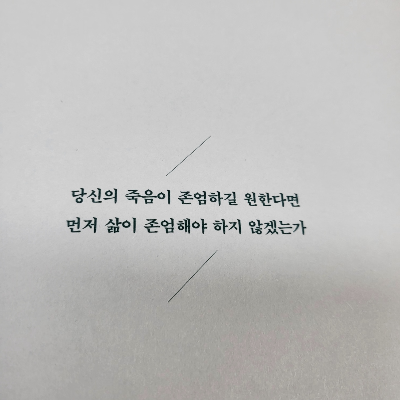 당신의 죽음이 존엄하길 원한다면
먼저 삶이 존엄해야 하지 않겠는가